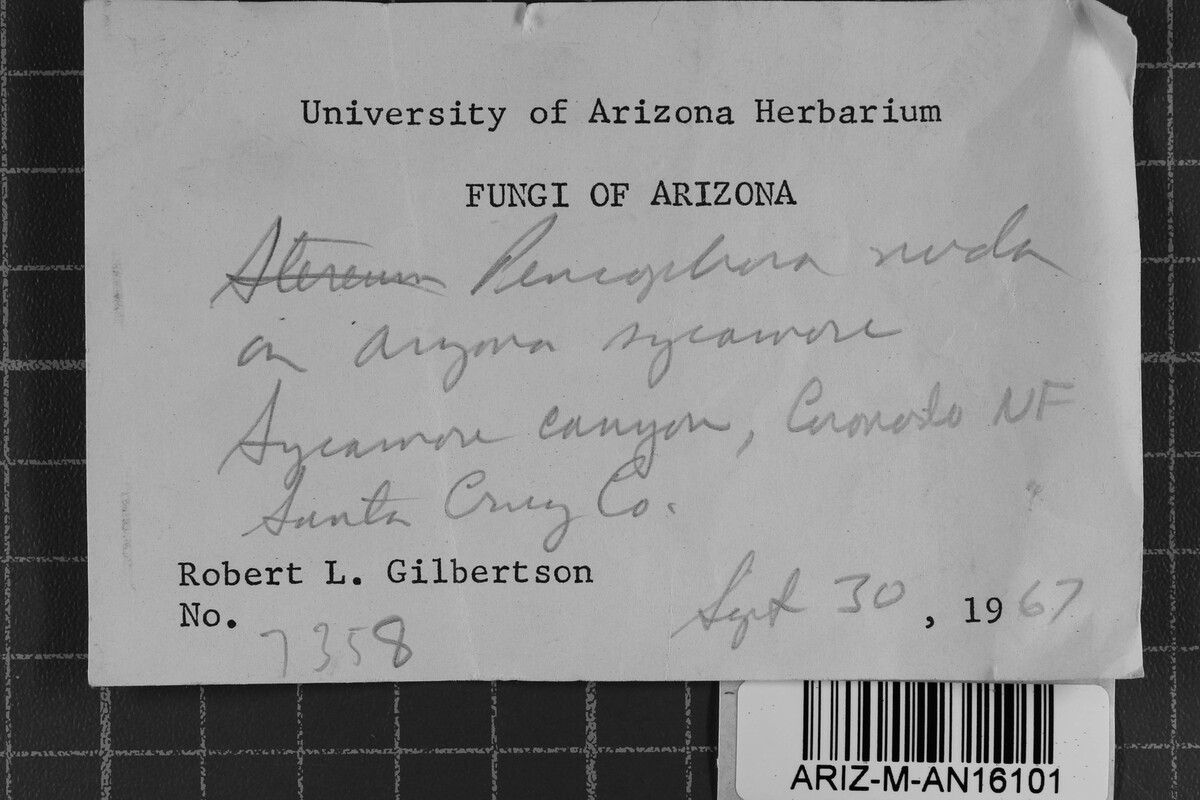 University of Arizona Herbarium
FUNGI OF ARIZONA
Stereum Peniophora nuda
on Arizona sycamore
Sycamore canyon, Coronado NF
Santa Cruz Co.
Robert L. Gilbertson
No. 7358
Sept 30, 1967
ARIZ-M-AN16101